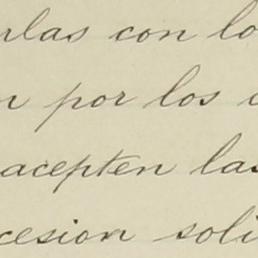 rlas con lo
n por los
acepten las
cesion soli